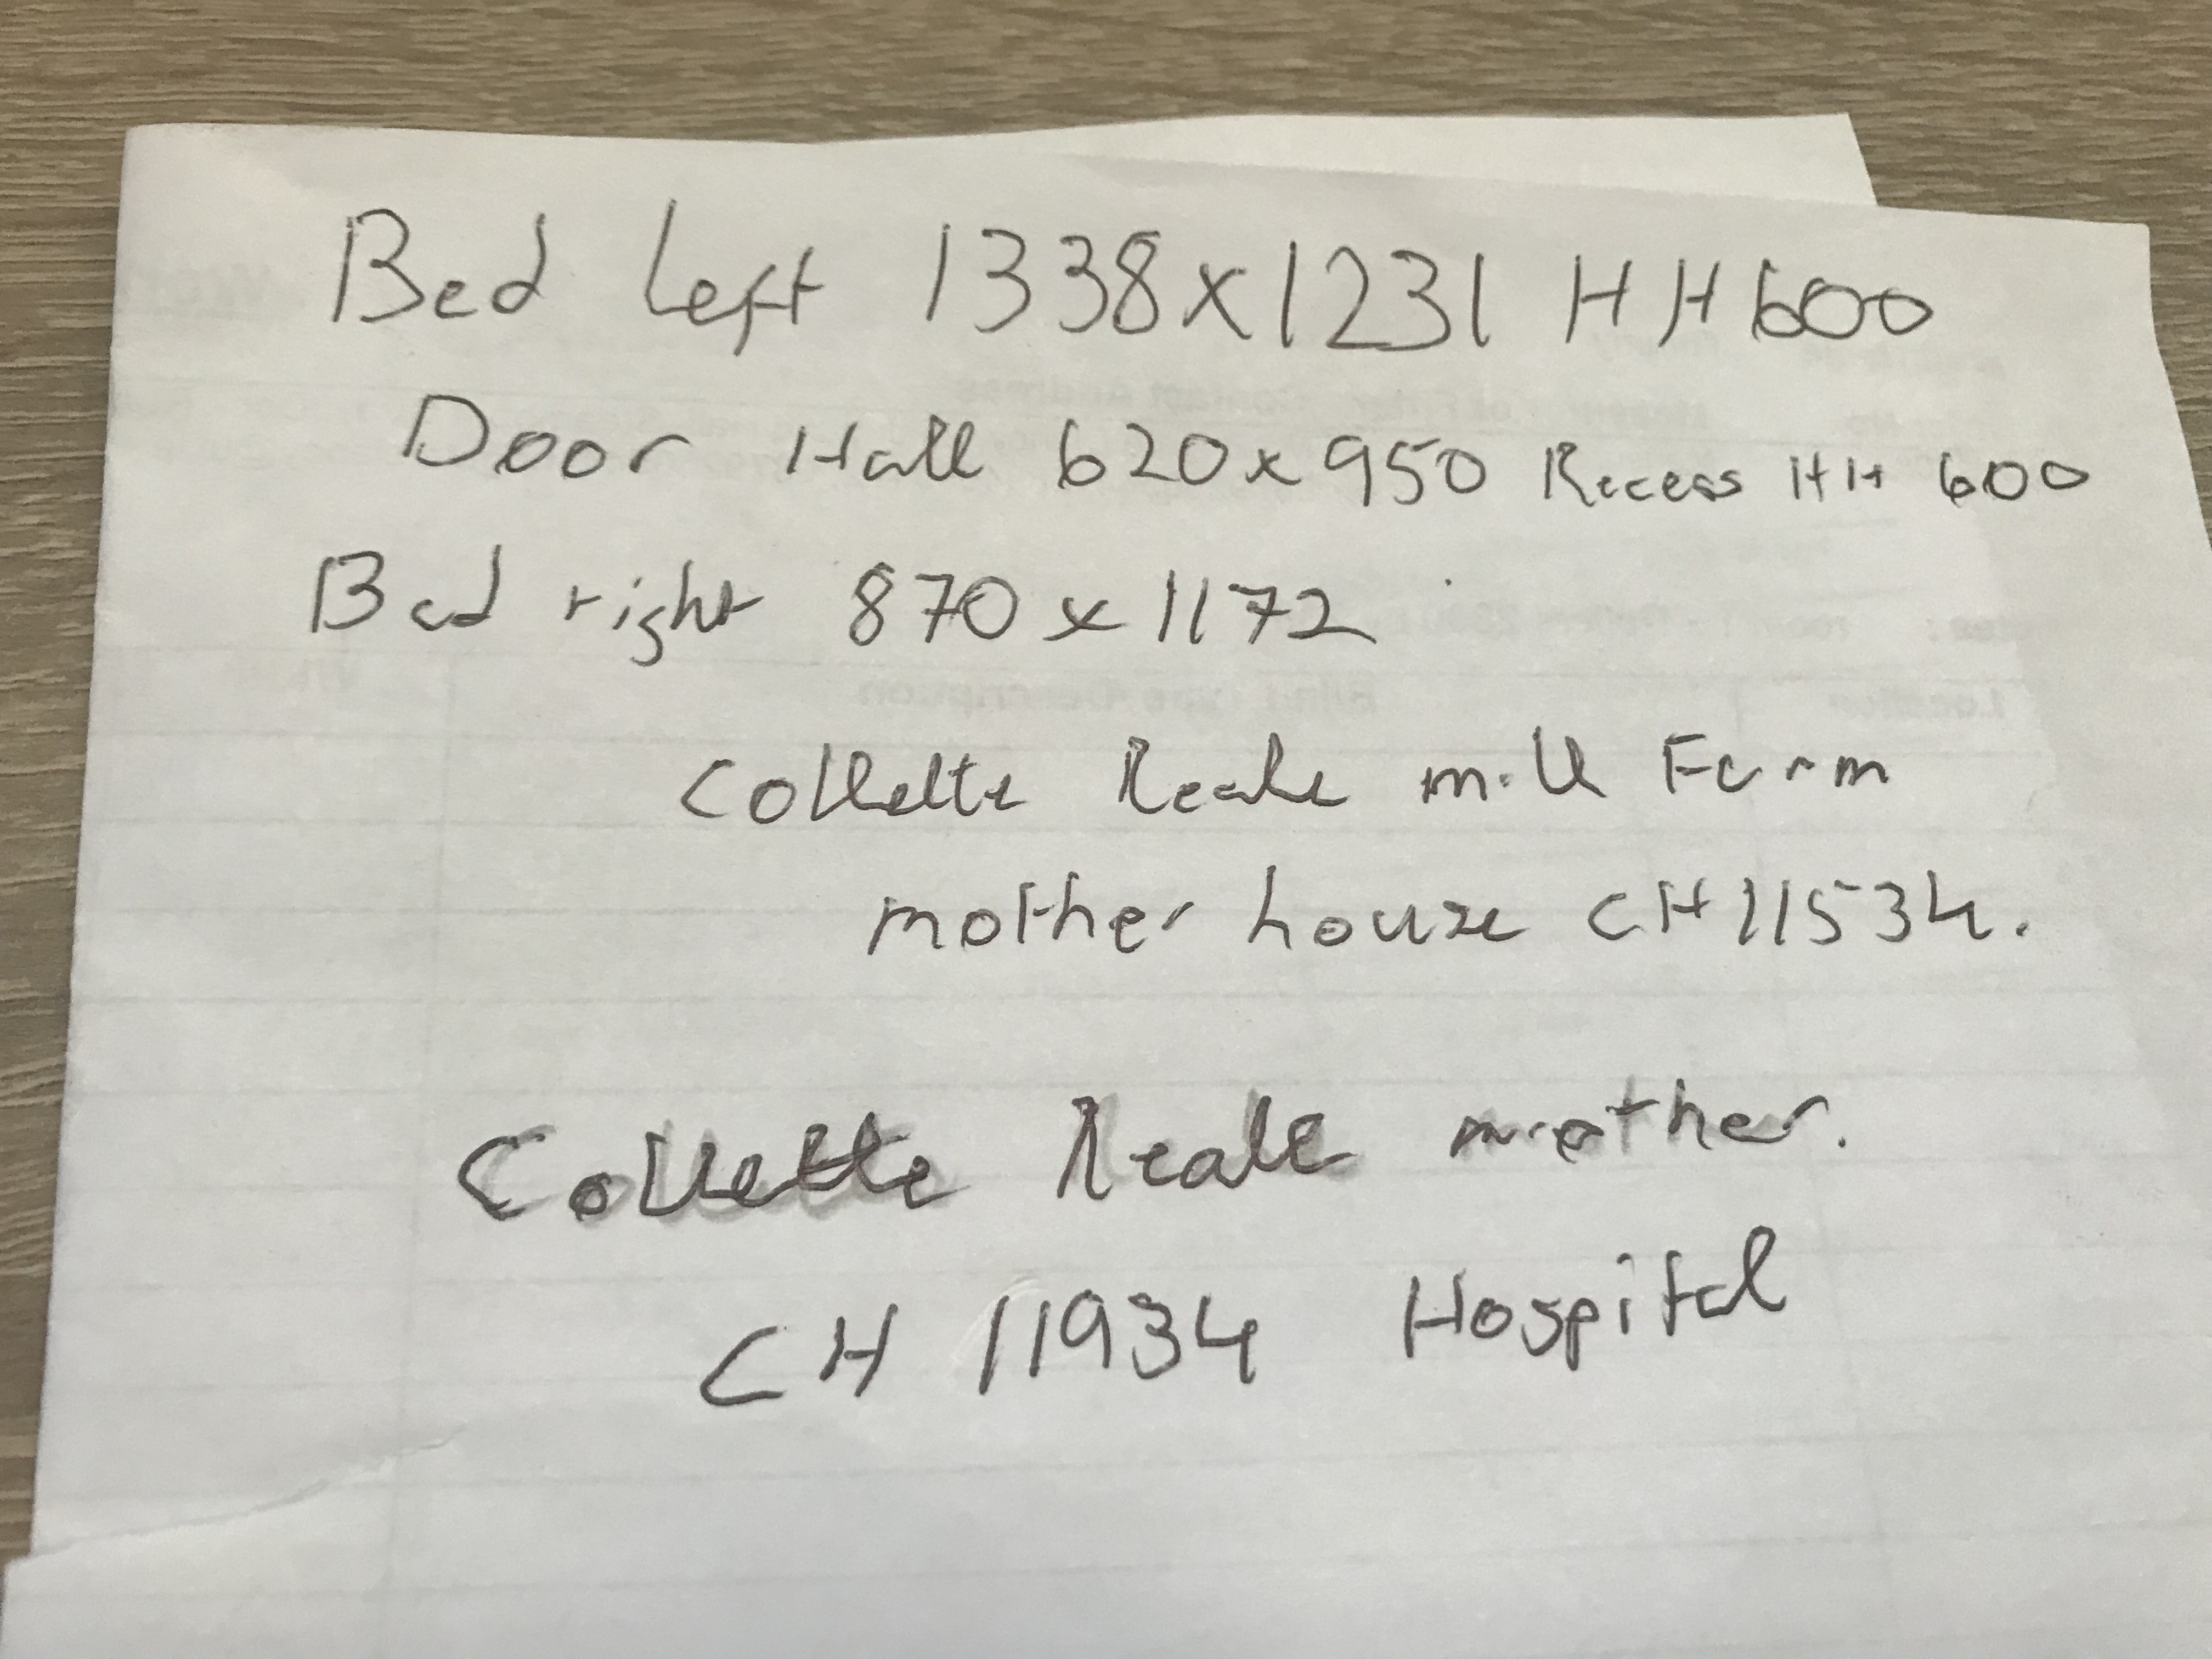 Bed left 1338x1231 HH 600
Door Hall 620x950 Recess HH 600
Bed right 870 x 1172
Collette Reale mill Farm
mother house CH 11534.
Collette Reale mother.
CH 11934 Hospital
Location